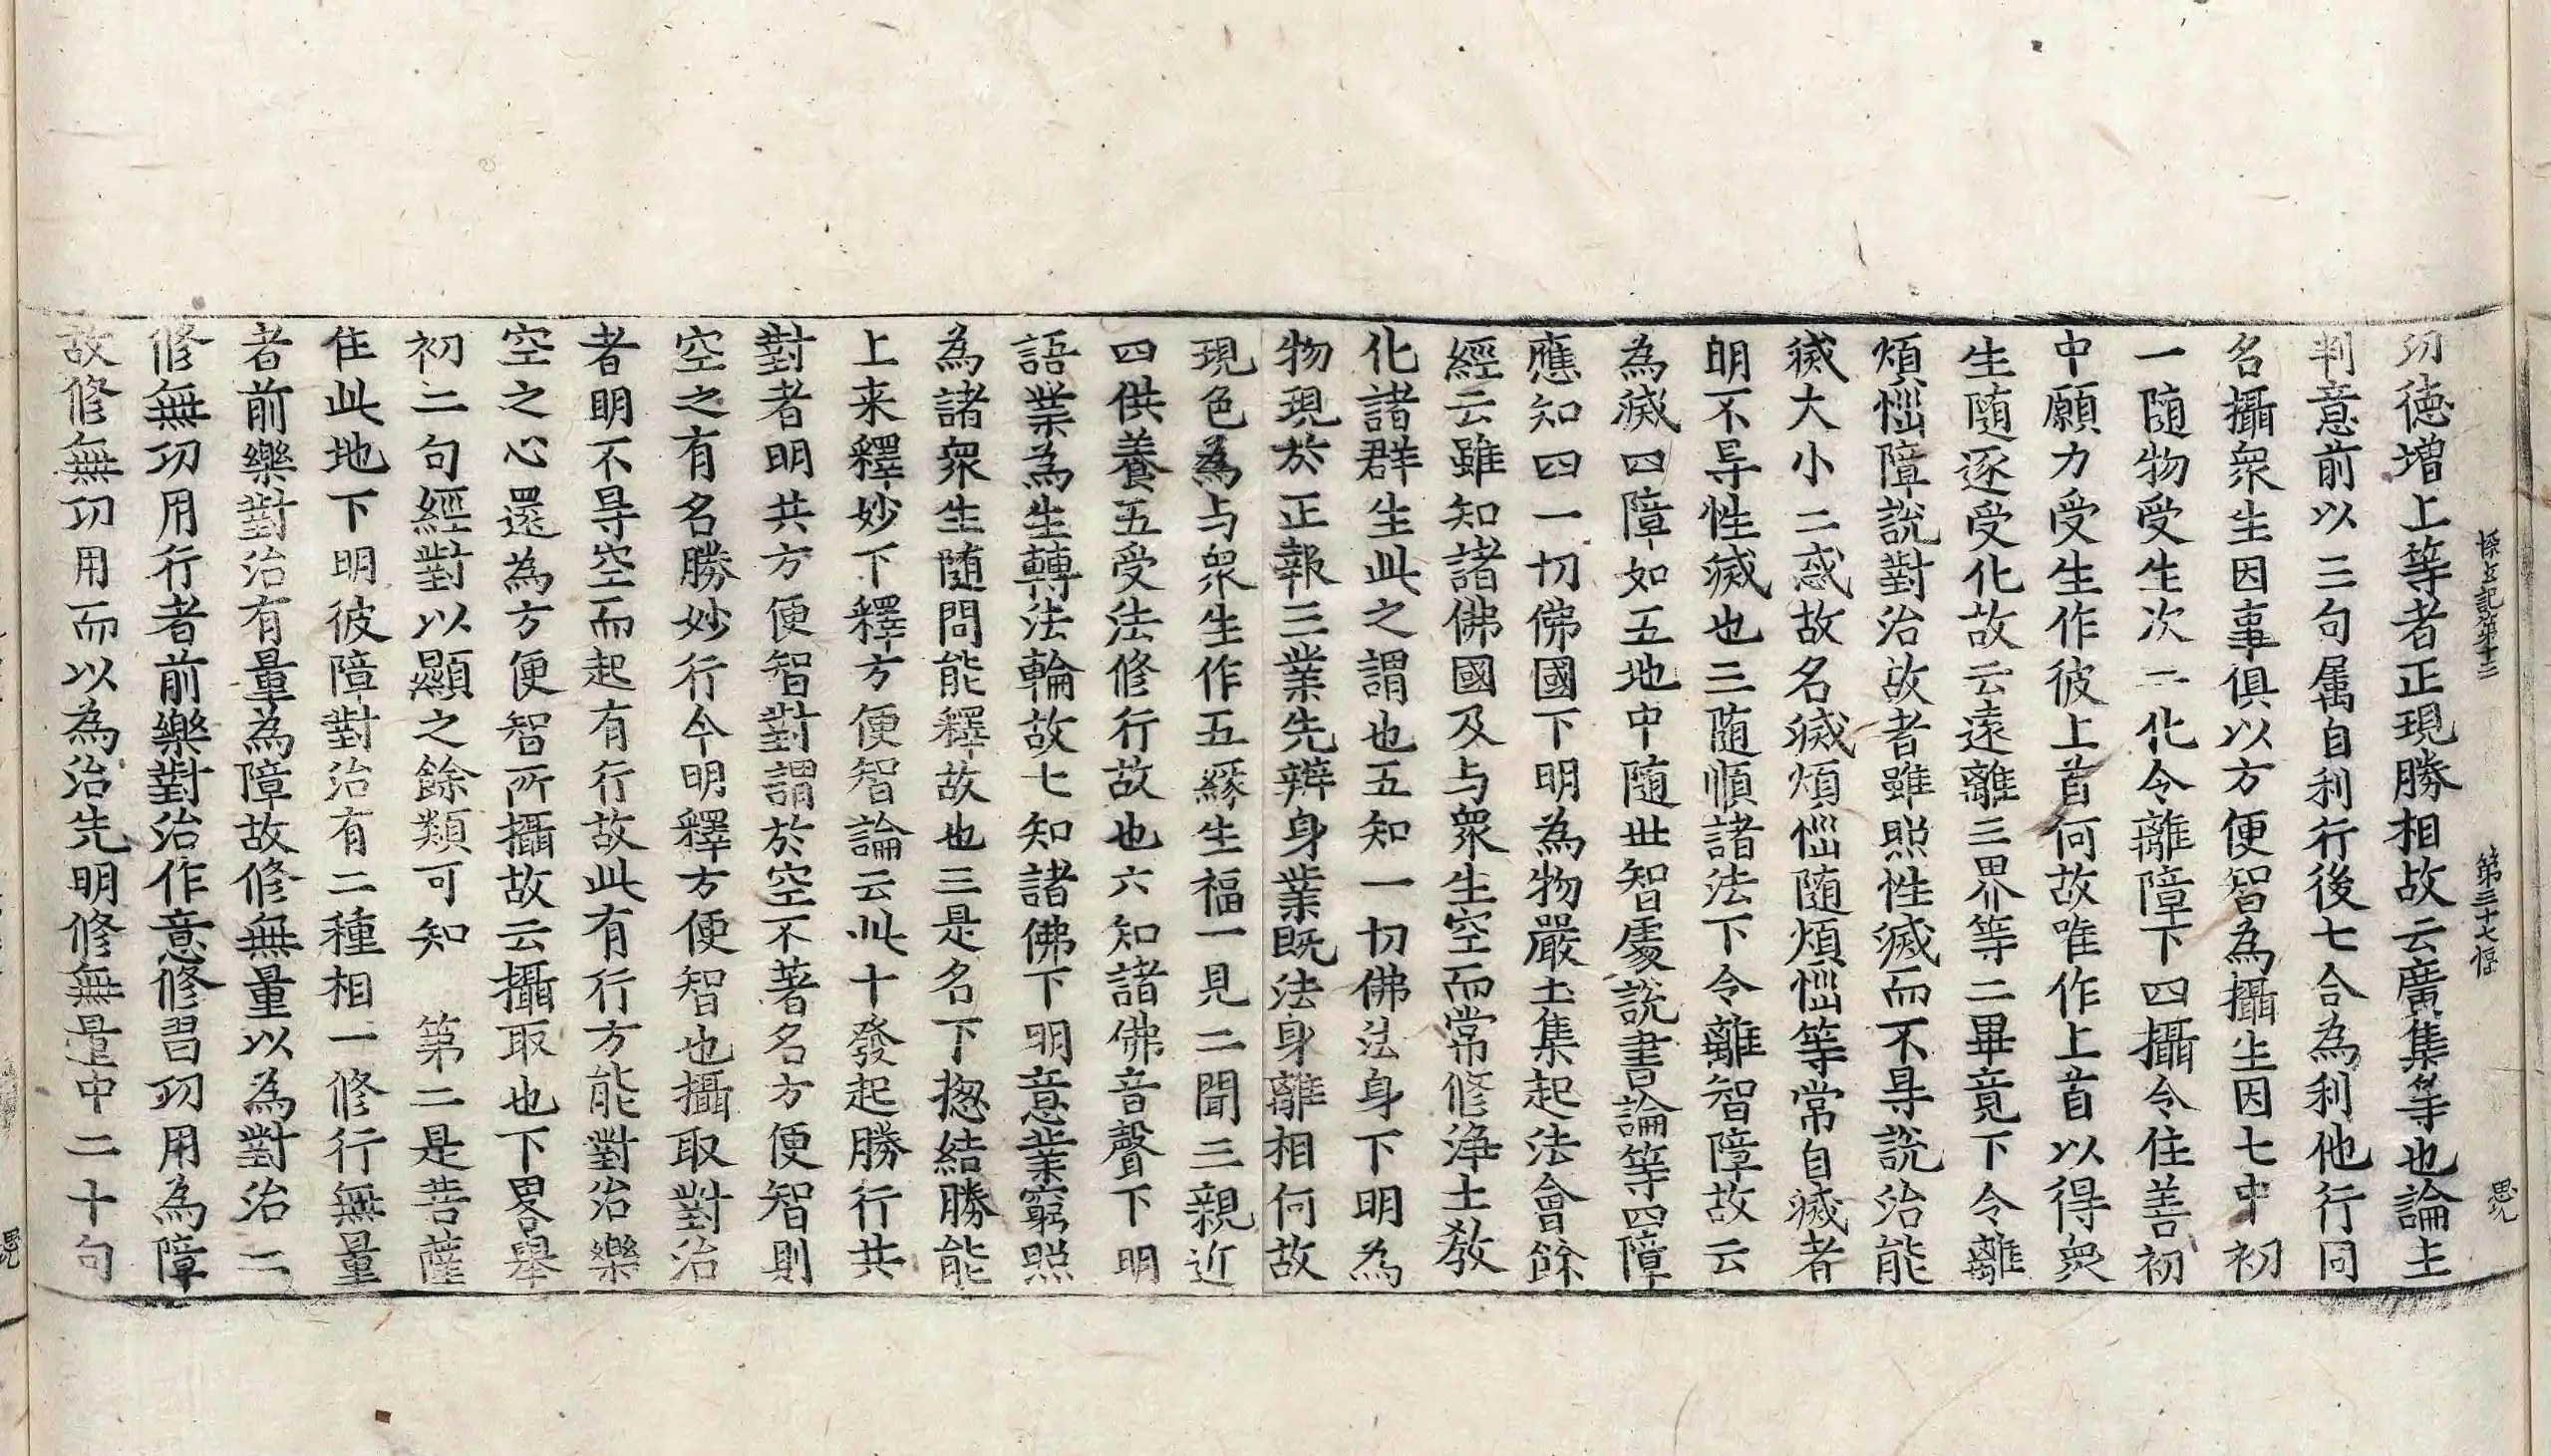 探玄記第十三 第三十七張 思
功德增上等者正現勝相故云廣集等也論主
判意前以三句属自利行後七合為利他行同
名攝衆生因事俱以方便智為攝生因七中初
一随物受生次二化令離障下四攝令住善初
中願力受生作彼上首何故唯作上首以得衆
生随逐受化故云遠離三界等二畢竟下令離
煩惱障說對治故者雖照性滅而不㝵說治能
滅大小二惑故名滅煩惱随煩惱等常自滅者
明不㝵性滅也三随順諸法下令離智障故云
為滅四障如五地中随世智處說書論等四障
應知四一切佛國下明為物嚴土集起法會餘
經云雖知諸佛國及与衆生空而常修淨土教
化諸群生此之謂也五知一切佛法身下明為
物現於正報三業先辨身業既法身離相何故
現色為与衆生作五緣生福一見二聞三親近
四供養五受法修行故也六知諸佛音聲下明
語業為生轉法輪故七知諸佛下明意業窮照
為諸衆生随問能釋故也三是名下揔結勝能
上来釋妙下釋方便智論云此十發起勝行共
對者明共方便智對謂於空不著名方便智則
空之有名勝妙行今明釋方便智也攝取對治
者明不㝵空而起有行故此有行方能對治樂
空之心還為方便智所攝故云攝取也下畧舉
初二句經對以顯之餘類可知　第二是菩薩
住此地下明彼障對治有二種相一修行無量
者前樂對治有量為障故修無量以為對治二
修無功用行者前樂對治作意修習功用為障
故修無功用而以為治先明修無量中二十句